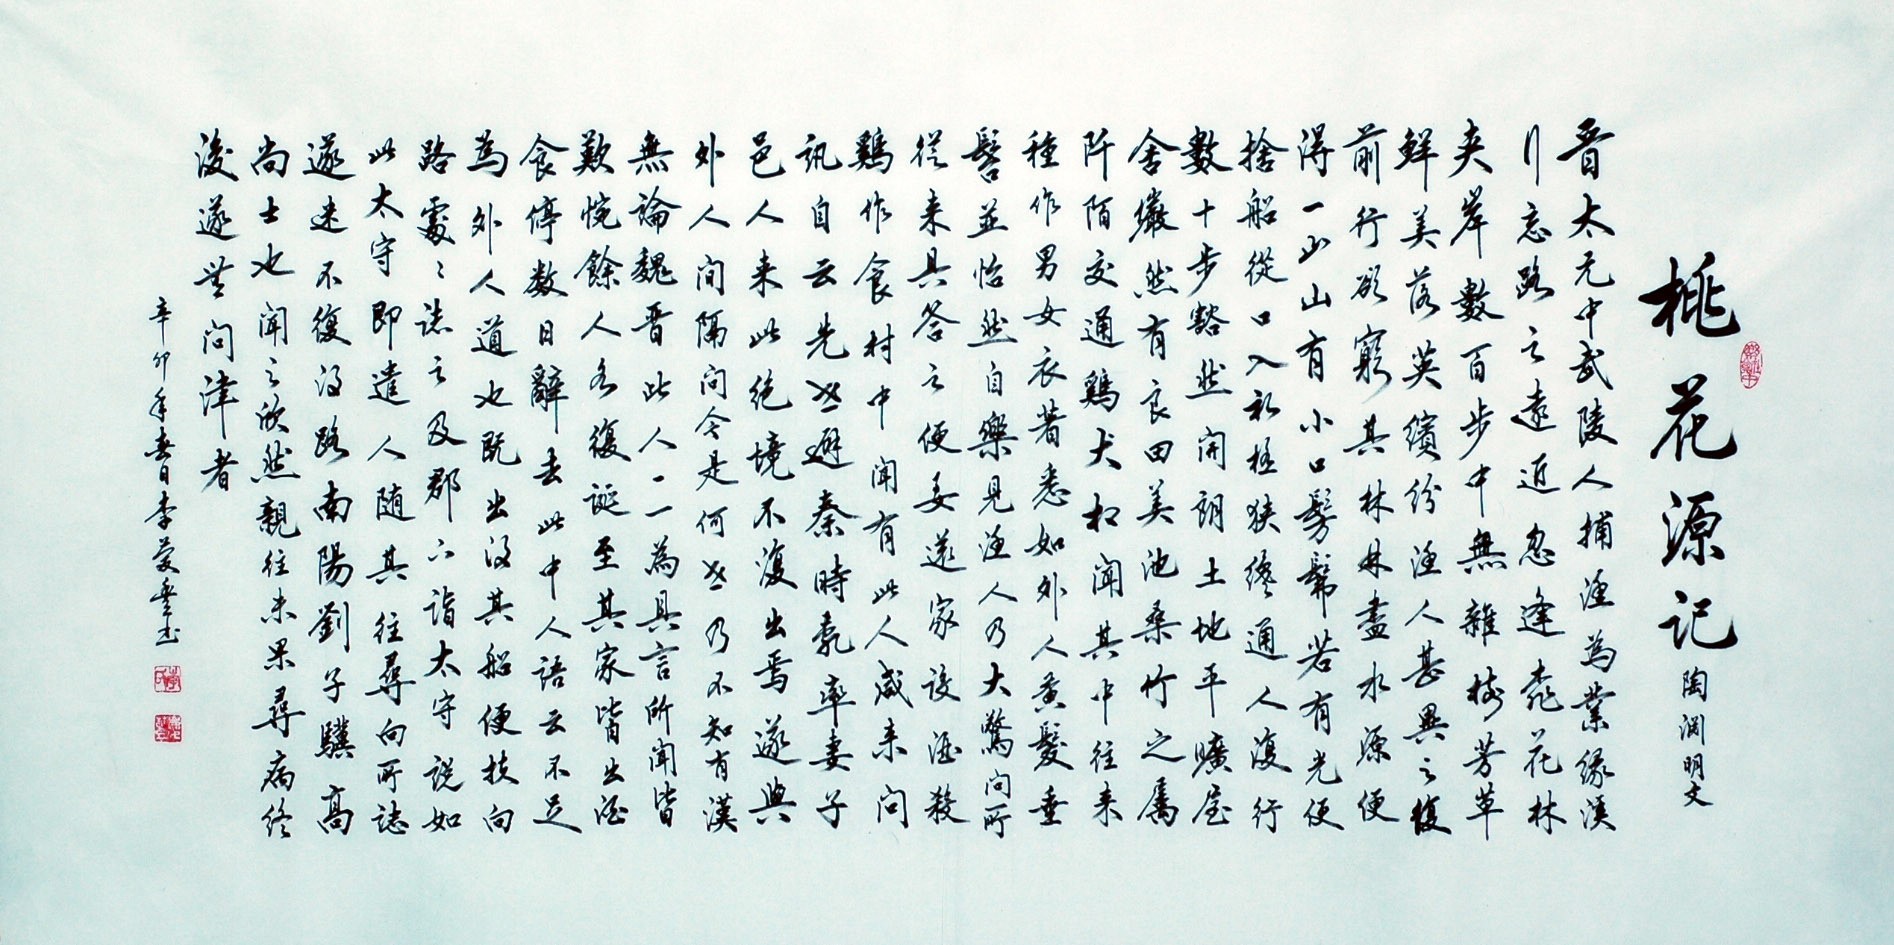 桃花源记
陶渊明文
晋太元中武陵人捕渔為業缘溪
行忘路之遠近忽逢桃花林
夹岸數百步中無雜樹芳草
鲜美落英缤纷渔人甚異之復
前行欲窮其林林盡水源便
得一山山有小口髣髴若有光便
捨船從口入初極狭纔通人復行
數十步豁然開朗土地平曠屋
舍儼然有良田美池桑竹之属
阡陌交通鷄犬相闻其中往来
種作男女衣著悉如外人黄髮垂
髫並怡然自樂見渔人乃大驚问所
從来具答之便要還家设酒殺
鷄作食村中闻有此人咸来问
讯自云先世避秦時亂率妻子
邑人来此绝境不復出焉遂與
外人间隔问今是何世乃不知有漢
無論魏晋此人一一為具言所闻皆
歎惋餘人各復延至其家皆出酒
食停数日辭去此中人語云不足
為外人道也既出得其船便扶向
路處々誌之及郡下詣太守說如
此太守即遣人随其往尋向所誌
遂迷不復得路南陽劉子驥高
尚士也闻之欣然親往未果尋病终
後遂无问津者
辛卯年春日李